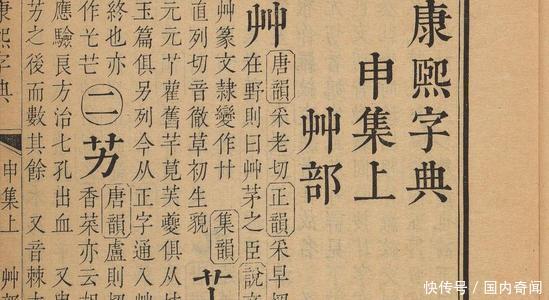 康熙字典
申集上
艸部
艸
唐韻采老切正韻采早
在野則曰艸茅之臣說
艸篆文隷變作廾集韻
直列切音徹草初生貌
雚舊芋莧芙夔俱从
玉篇俱另列今从正字通入
終也亦
二
艻
唐韻盧則切
香菜亦云
應驗良方治七孔出血 又
之後而數其餘 又音棘
熙字典 申集上 艸部
快传号 / 国内奇闻